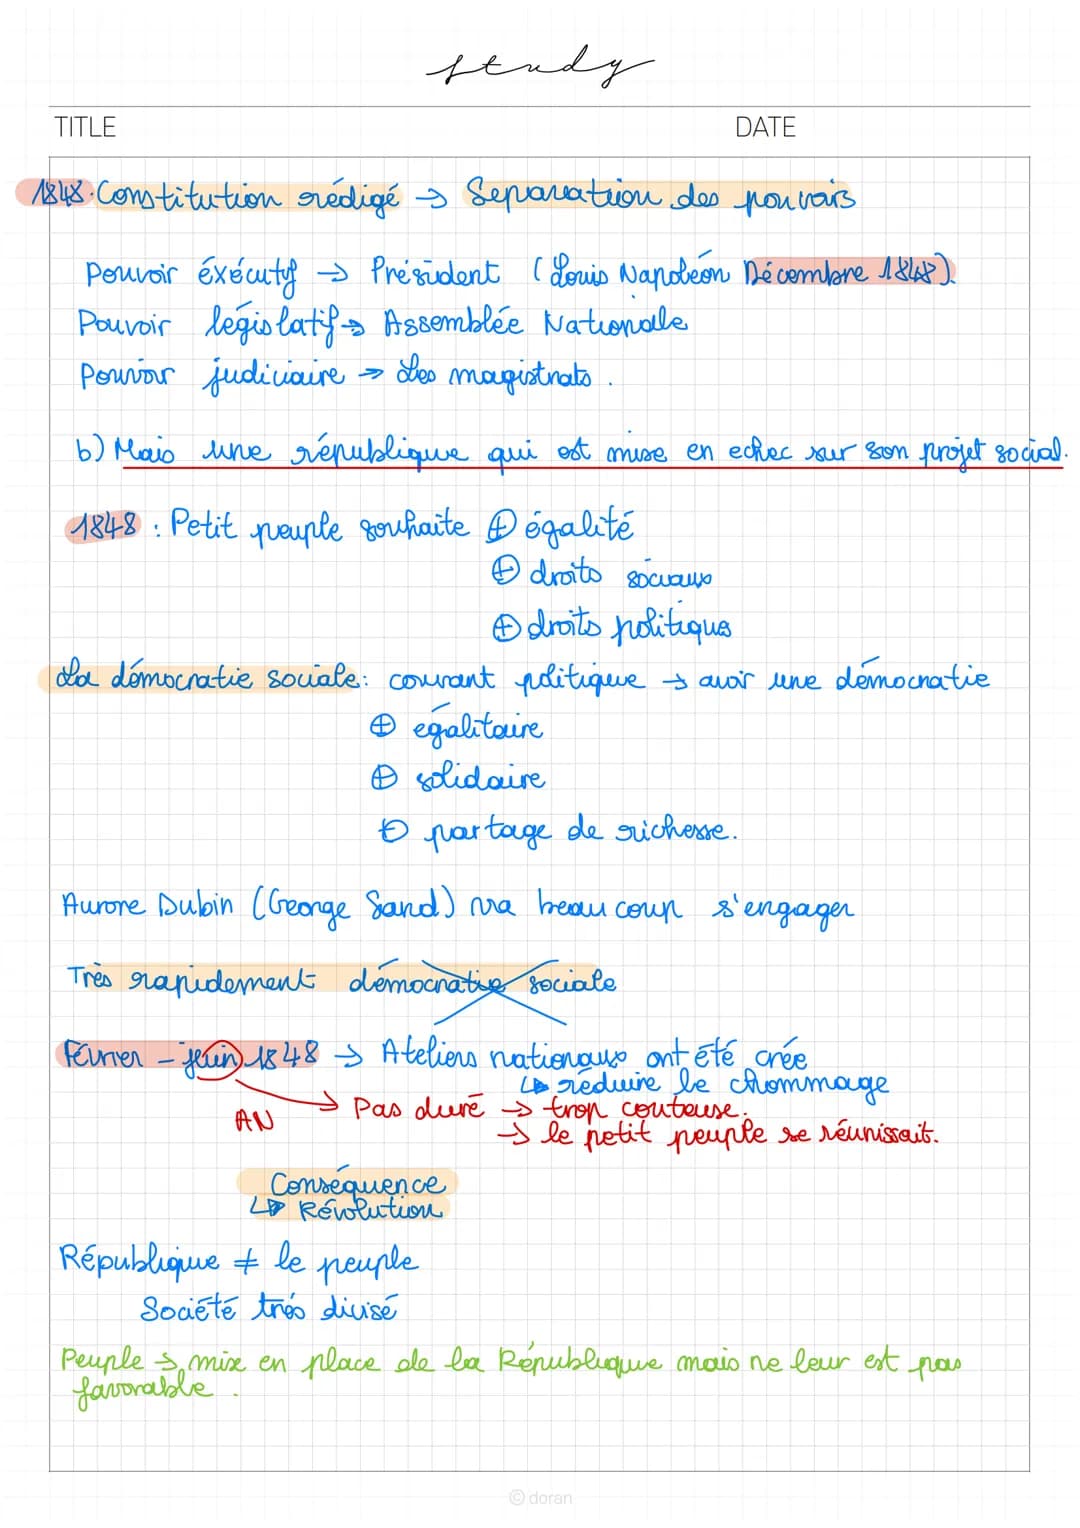 study
TITLE DATE
1848. Constitution rédigé → Separation des pouvoirs
Pouvoir éxécutif → Président (Louis Napoléon Décembre 1848).
Pouvoir législatif → Assemblée Nationale
Pouvoir judiciaire → Les magistrats.
b) Mais une république qui est mise en echec sur son projet social.
1848 : Petit peuple souhaite ⊕ égalité
⊕ droits sociaux
⊕ droits politiques
La démocratie sociale: courant politique → avoir une démocratie
⊕ égalitaire
⊕ solidaire
⊕ partage de richesse.
Aurore Dubin (George Sand) va beaucoup s'engager
Très rapidement démocratie sociale
Février - juin 1848 → Ateliers nationaux ont été crée
↳ réduire le chommage
AN → Pas duré → trop couteuse.
→ le petit peuple se réunissait.
Conséquence
↳ Révolution
République ≠ le peuple
Société très divisé
Peuple → mise en place de la République mais ne leur est pas
favorable.
© doran